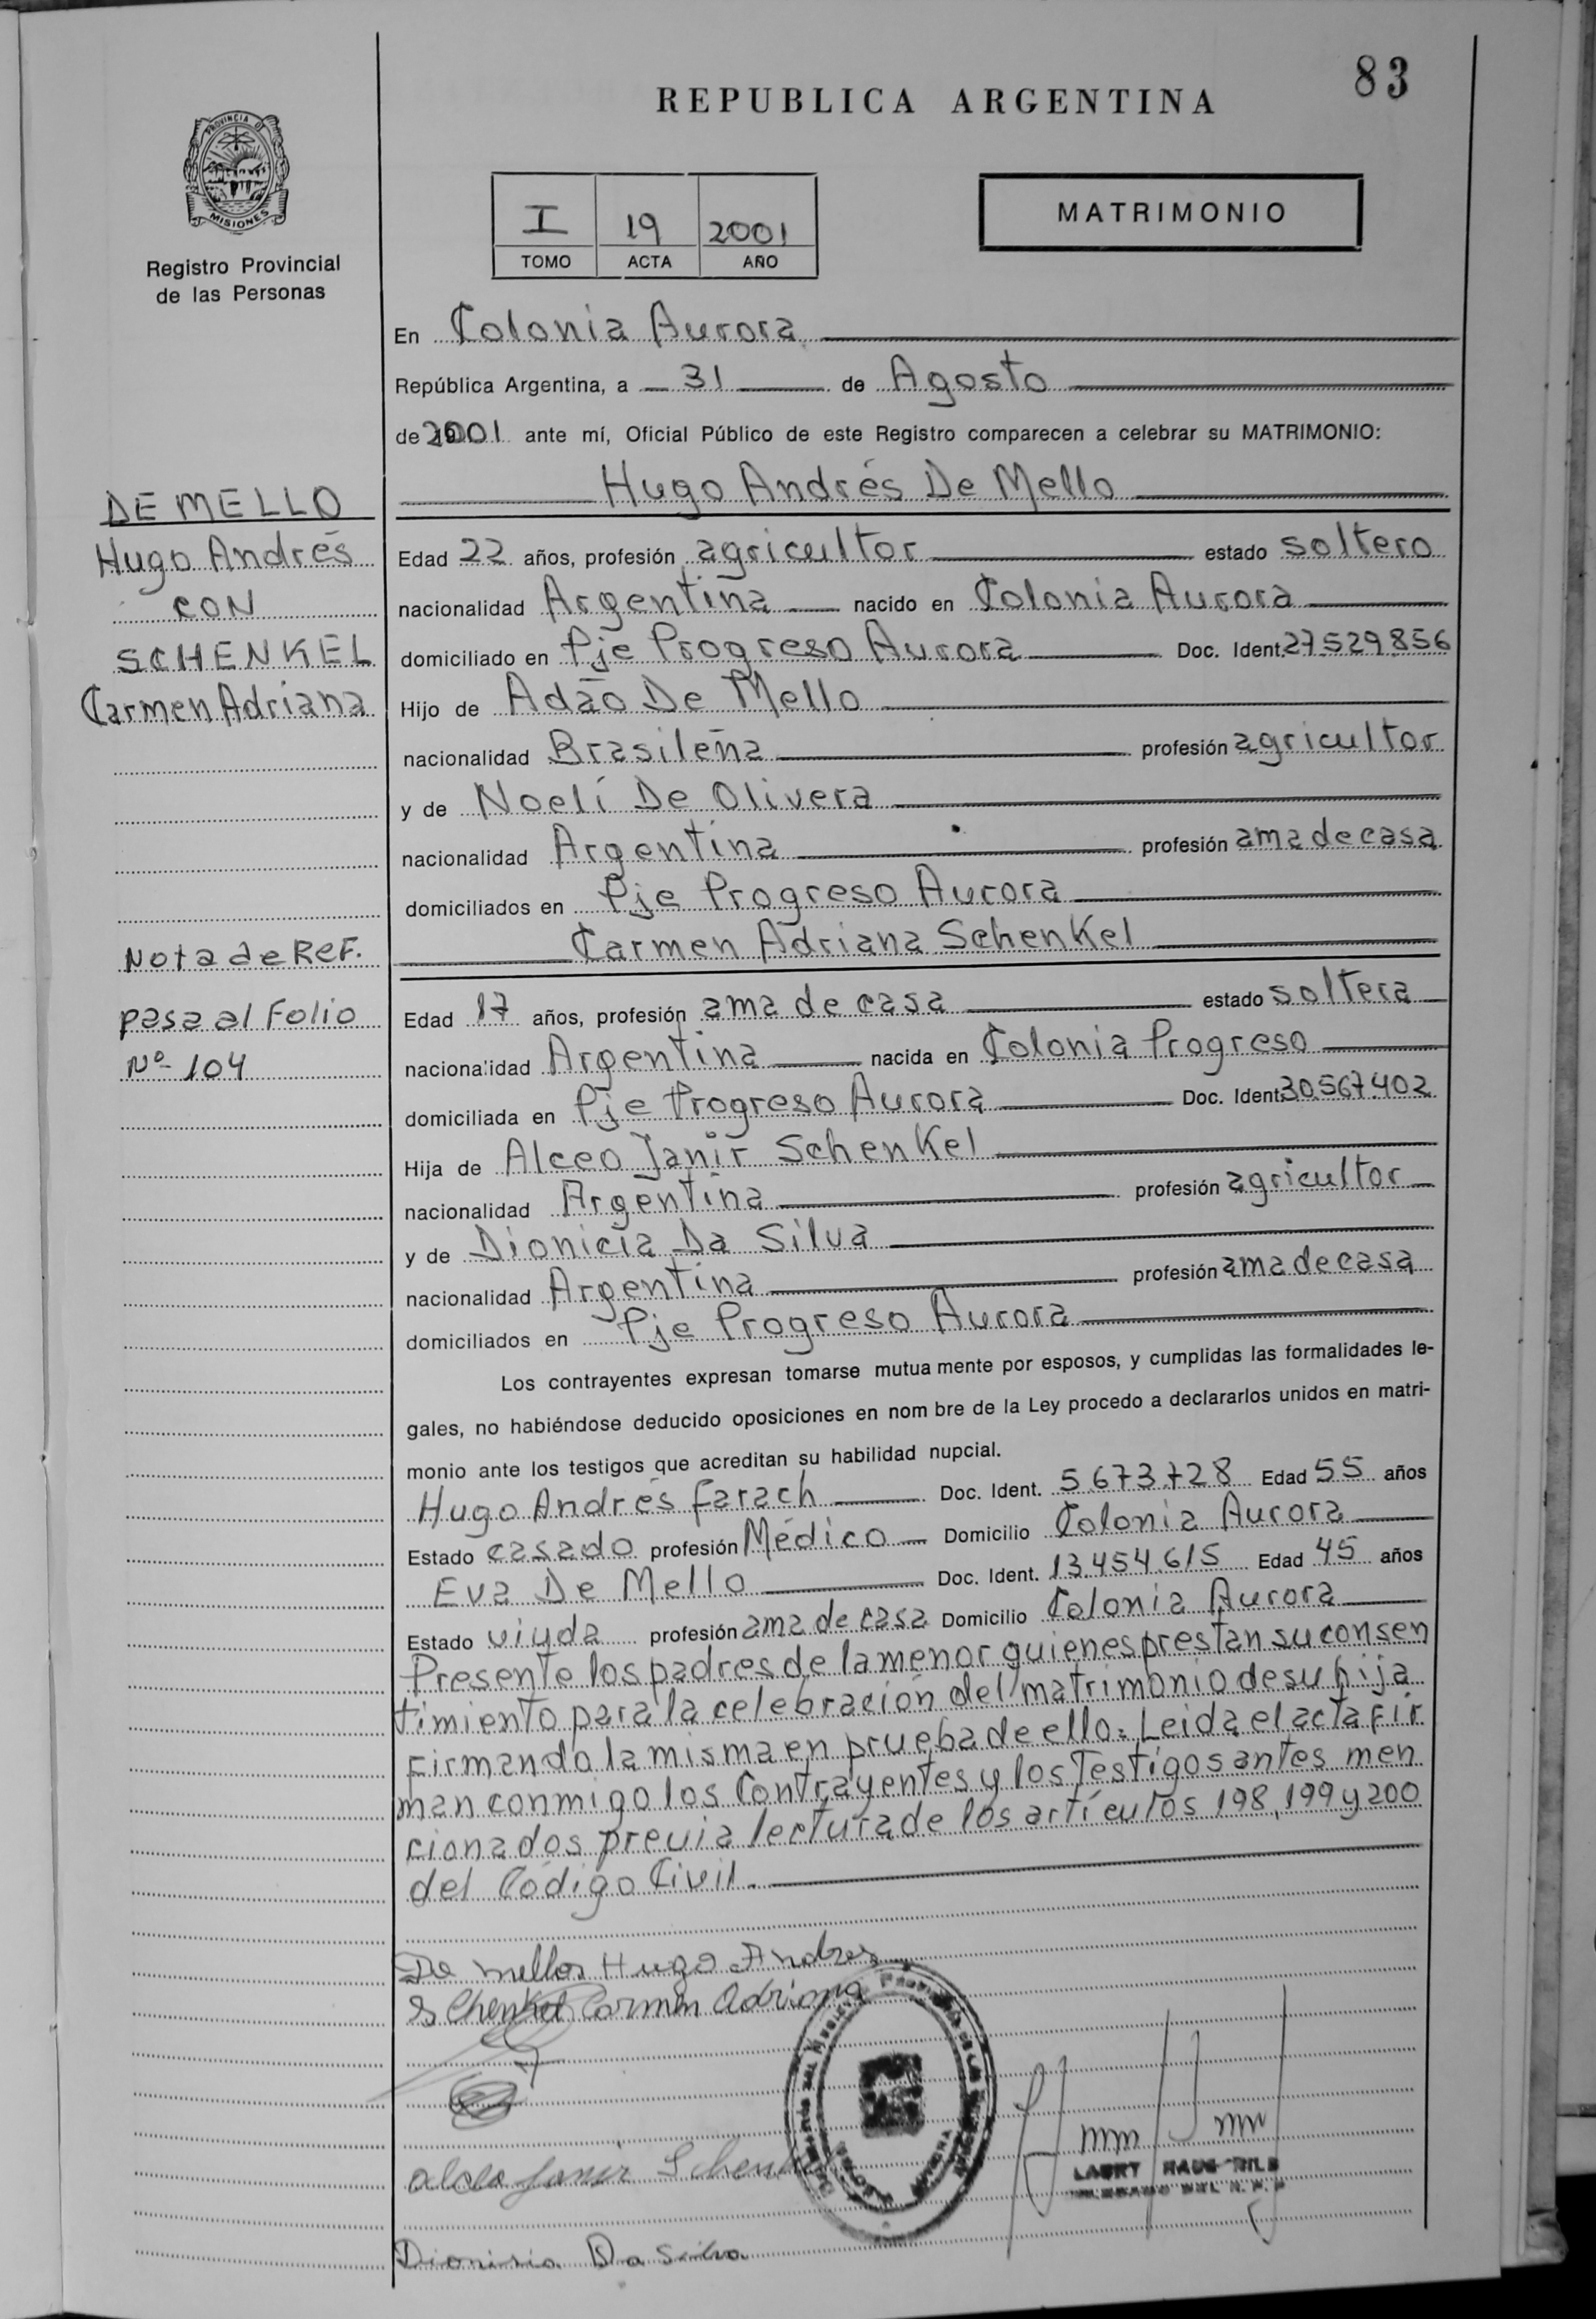 83
REPUBLICA ARGENTINA
PROVINCIA DE
MISIONES
Registro Provincial
de las Personas
I 19 2001
TOMO ACTA AÑO
MATRIMONIO
En Colonia Aurora
República Argentina, a 31 de Agosto
de 2001 ante mí, Oficial Público de este Registro comparecen a celebrar su MATRIMONIO:
Hugo Andrés De Mello
DE MELLO
Hugo Andrés
CON
SCHENKEL
Carmen Adriana
Edad 22 años, profesión agricultor estado soltero
nacionalidad Argentina nacido en Colonia Aurora
domiciliado en Pje Progreso Aurora Doc. Ident. 27.529.856
Hijo de Adão De Mello
nacionalidad Brasileña profesión agricultor
y de Noelí De Olivera
nacionalidad Argentina profesión ama de casa
domiciliados en Pje Progreso Aurora
Carmen Adriana Schenkel
Nota de REF.
pasa al Folio
Nº 104
Edad 17 años, profesión ama de casa estado soltera
nacionalidad Argentina nacida en Colonia Progreso
domiciliada en Pje Progreso Aurora Doc. Ident. 30.567.402
Hija de Alceo Janir Schenkel
nacionalidad Argentina profesión agricultor
y de Dionicia Da Silva
nacionalidad Argentina profesión ama de casa
domiciliados en Pje Progreso Aurora
Los contrayentes expresan tomarse mutua mente por esposos, y cumplidas las formalidades le-
gales, no habiéndose deducido oposiciones en nom bre de la Ley procedo a declararlos unidos en matri-
monio ante los testigos que acreditan su habilidad nupcial.
Hugo Andrés Farach Doc. Ident. 5.673.728 Edad 55 años
Estado casado profesión Médico Domicilio Colonia Aurora
Eva De Mello Doc. Ident. 13.454.615 Edad 45 años
Estado viuda profesión ama de casa Domicilio Colonia Aurora
Presente los padres de la menor quienes prestan su consen
timiento para la celebración del matrimonio de su hija
Firmando la misma en prueba de ello. Leida el acta Fir
man conmigo los Contrayentes y los Testigos antes men
cionados previa lectura de los artículos 198, 199 y 200
del Código Civil.
De mello Hugo Andres
Schenkel Carmen Adriana
Alceo Janir Schenkel
Dionisia Da Silva